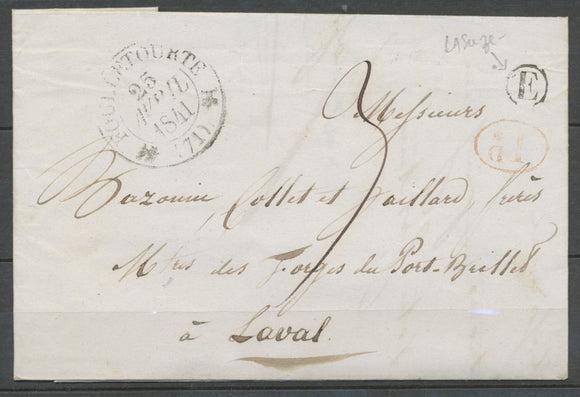 FOULLETOURTE
25
AVRIL
1841
(71)
E
1 D
Messieurs
Bazouin, Collet et Paillard frères
Mtres des Forges du Port-Brillet
à Laval.